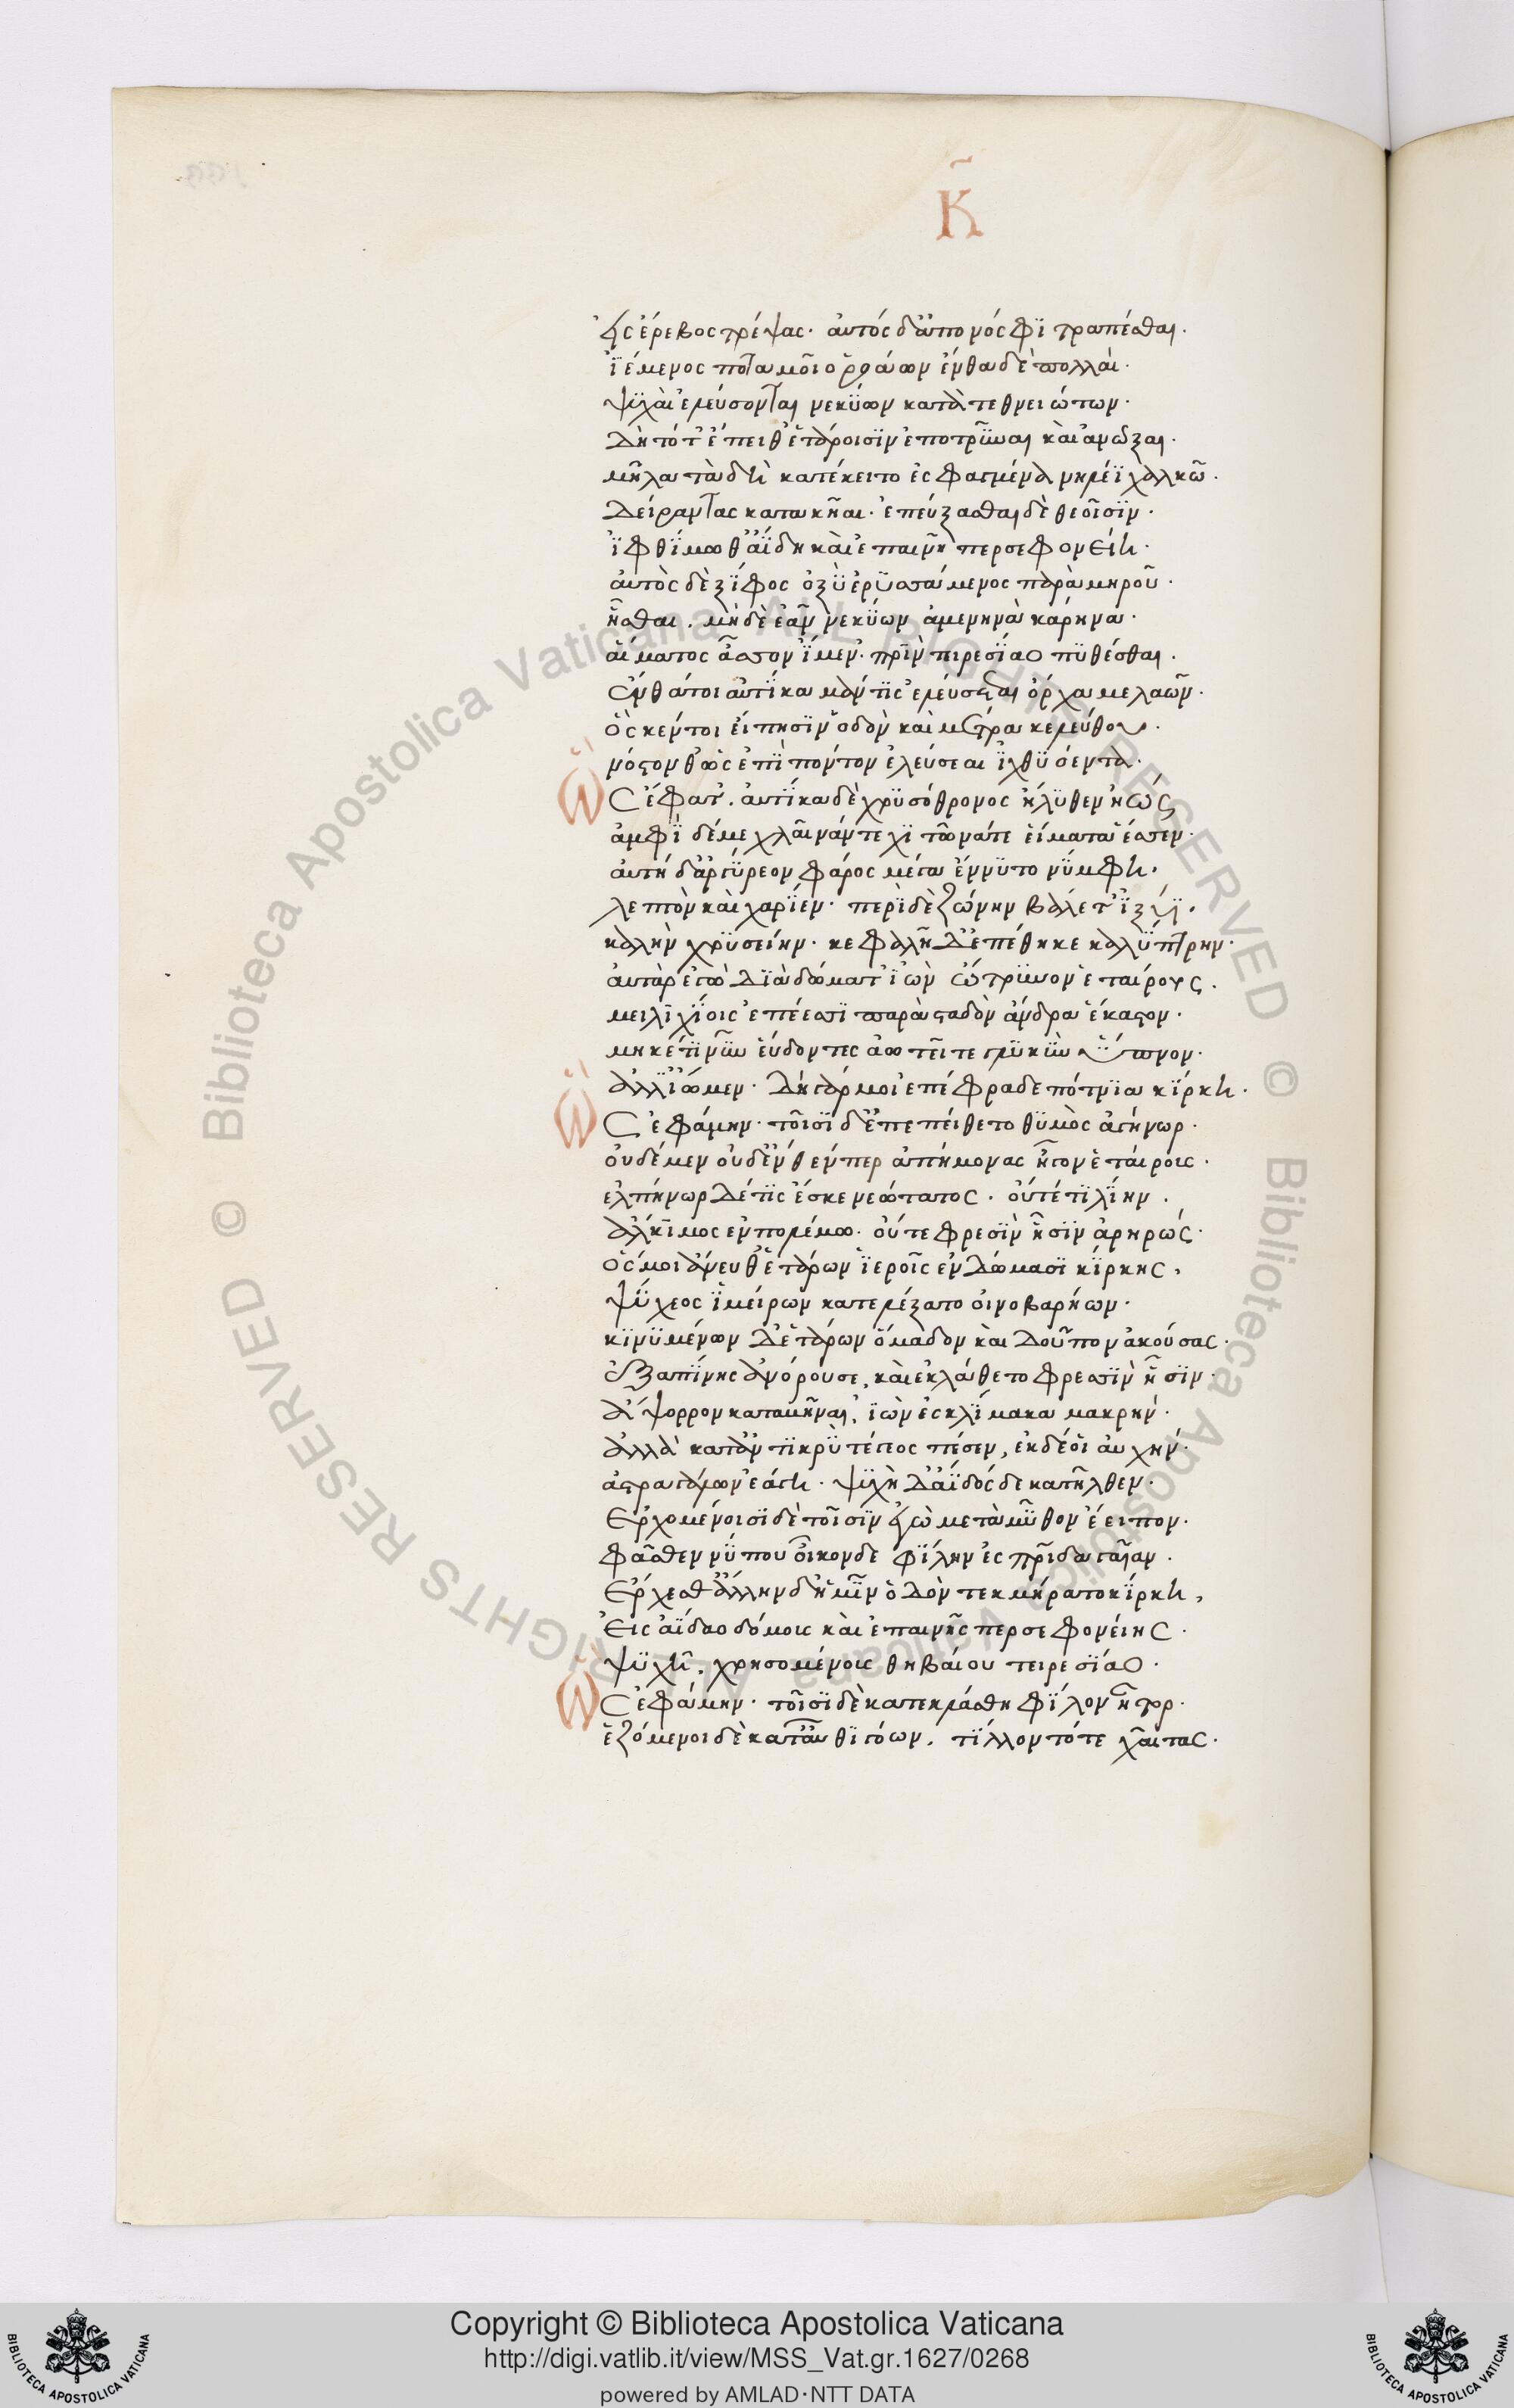 Κ̃
εἰς ἔρεβος τρέψας· ἀυτός δ' ἀπονόσφϊ τραπέσθαι·
ϊέμενος ποταμοῖο ῥοάων ἔνθα δὲ πολλαὶ·
ψϋχαὶ ἐλεύσονται νεκΰων κατὰτεθνειώτων·
Δὴ τότ' ἔπειθ' ἑτάροισϊν ἐποτρῦναι καὶ ἀνῶξαι·
μῆλα τὰ δὴ κατέκειτο ἐσφαγμένα νηλέϊ χαλκῶ·
Δείραντας κατακῆαι· ἐπεύξασθαι δὲ θεοῖσϊν·
ϊφθΐμω θ' ἀΐδη καὶ ἐπαινῆ περσεφονείη·
ἀυτὸς δὲ ξΐφος ὀξϋ ἐρϋσσάμενος παρὰ μηροῦ·
ἧσθαι. μὴδὲ ἐᾶν νεκΰων ἀμενηνὰ κάρηνα·
ἅιματος ἆσσον ΐμεν· πρῒν τειρεσΐαο πϋθέσθαι·
Ἔνθά τοι αὐτΐκα μάντϊς ἐλεύσεται ὄρχαμε λαῶν·
ὅς κέν τοι εἴπησϊν ὁδὸν καὶ μέτρα κελεύθου·
νόστον θ' ὡς ἐπῒ πόντον ἐλεύσεαι ϊχθϋόεντα·
Ὣς ἔφατ'. ἀυτΐκα δὲ χρϋσόθρονος ἤλϋθεν ἠώς
ἀμφῒ δέ με χλαῖνάν τε χϊτῶνά τε εἵματα ἕσσεν·
ἀυτὴ δ' ἀργΰρεον φάρος μέγα ἕννϋτο νΰμφη·
λεπτὸν καὶ χαρΐεν· περῒ δὲ ζώνην βάλετ' ϊξυῖ·
καλὴν χρϋσείην· κεφαλῆ Δ' ἐπέθηκε καλΰπτρην·
ἀυτὰρ ἐγὼ Δϊὰ δώματ' ϊὼν ὤτρϋνον ἑταίρους·
μειλϊχΐοις ἐπέεσσϊ παρασταδὸν ἄνδρα ἕκαστον·
μηκέτϊ νῦν εὕδοντες ἀωτεῖτε γλϋκὺν ὕπνον·
ἀλλ' ΐωμεν· Δὴ γάρ μοι ἐπέφραδε πότνϊα κΐρκη·
Ὣς ἐφάμην· τοῖσϊ δ' ἐπεπείθετο θϋμὸς ἀγήνωρ·
οὐδέ μεν οὐδ' ἔνθέν περ ἀπήμονας ἦγον ἑταίροις·
ἐλπήνωρ Δέ τϊς ἔσκε νεώτατος· οὔτέ τϊ λΐην·
ἄλκϊμος ἐν πολέμω· οὔτε φρεσῒν ᾗσϊν ἀρηρώς·
ὅς μοι ἄνευθ' ἑτάρων ϊεροῖς ἐν Δώμασϊ κΐρκης,
ψΰχεος ϊμείρων κατελέξατο οἰνοβαρήων·
κϊνϋμένων Δ' ἑτάρων ὅμαδον καὶ Δοῦπον ἀκούσας·
ἐξαπΐνης ἀνόρουσε, καὶ ἐκλάθετο φρεσῒν ᾗσϊν·
ἄψορρον καταβῆναι, ϊὼν ἐς κλΐμακα μακρήν·
ἀλλὰ καταντϊκρϋ τέγεος πέσεν, ἐκ δέ ὁι ἀυχὴν·
ἀστραγάλων ἐάγη· ψϋχὴ Δ' ἀΐδόσδε κατῆλθεν·
Ἐρχομένοισϊ δὲ τοῖσϊν ἐγὼ μετὰ μῦθον ἔειπον·
φᾶσθε νΰ που οἶκονδε φΐλην ἐς πατρΐδα γαῖαν·
Ἔρχεσθ' ἄλλην δ' ἧμϊν ὁδὸν τεκμήρατο κΐρκη,
Ἐις ἀΐδαο δόμοις καὶ ἐπαινῆς περσεφονείης·
ψϋχῆ. χρησομένοις θηβαίου τειρεσΐαο·
Ὣς ἐφάμην· τοῖσϊ δὲ κατεκλάσθη φΐλον ἦτορ·
ἑζόμενοι δὲ κατ' αὖθϊ γόων. τΐλλοντό τε χαίτας·
Copyright © Biblioteca Apostolica Vaticana
http://digi.vatlib.it/view/MSS_Vat.gr.1627/0268
powered by AMLAD·NTT DATA